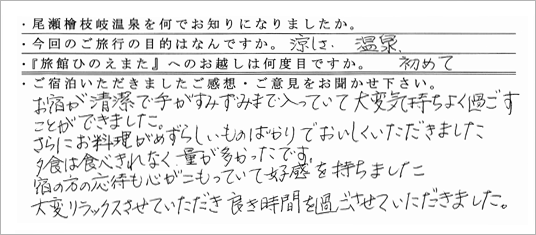 ・尾瀬檜枝岐温泉を何でお知りになりましたか。
・今回のご旅行の目的はなんですか。 涼しさ・温泉、
・『旅館ひのえまた』へのお越しは何度目ですか。 初めて
・ご宿泊いただきましたご感想・ご意見をお聞かせ下さい。
お宿が清潔で手がすみずみまで入っていて大変気持ちよく過ごす
ことができました。
さらにお料理がめずらしいものばかりでおいしくいただきました
夕食は食べきれなく量が多かったです。
宿の方の応待も心がこもっていて好感を持ちました
大変リラックスさせていただき良き時間を過ごさせていただきました。